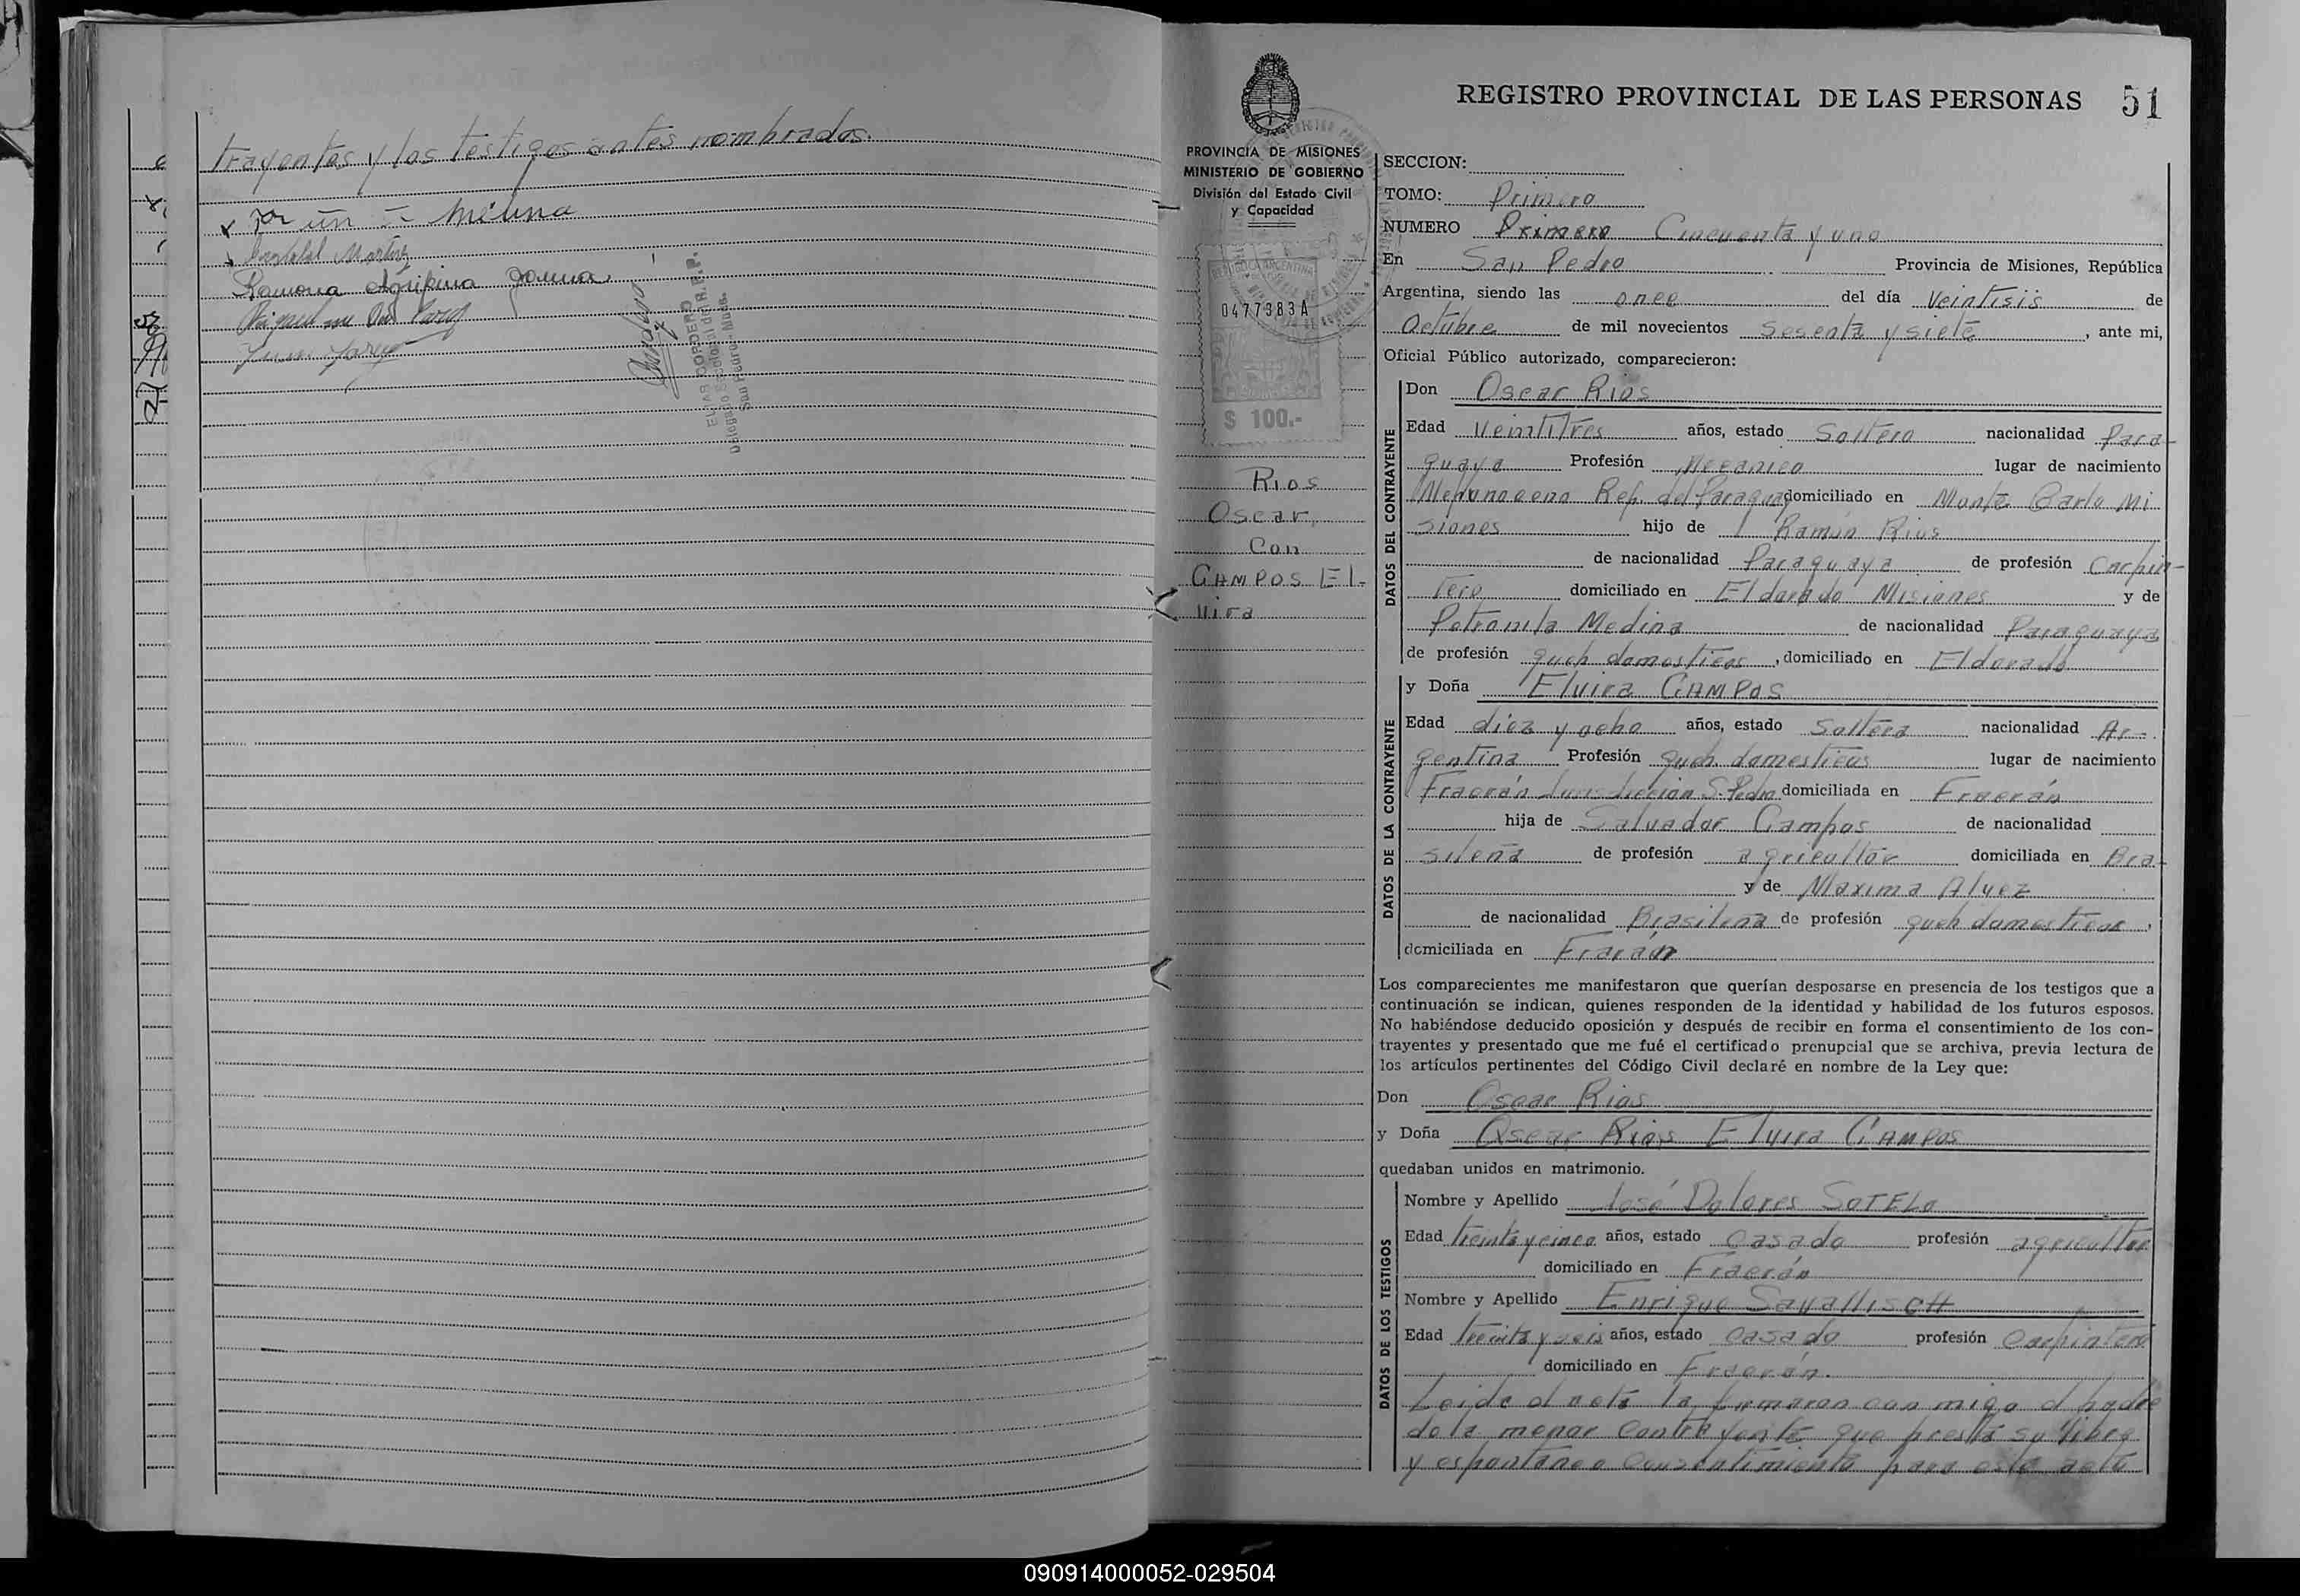 trayentes y los testigos antes nombrados.
Ramona Agripina
ELIAS CORDERO
REGISTRO PROVINCIAL DE LAS PERSONAS 51
PROVINCIA DE MISIONES
MINISTERIO DE GOBIERNO
División del Estado Civil
y Capacidad
REPUBLICA ARGENTINA
0477383A
$ 100.-
Rios
Oscar
Con
CAMPOS El-
vira
SECCION:
TOMO: Primero
NUMERO Primero Cincuenta y uno
En San Pedro Provincia de Misiones, República
Argentina, siendo las once del día Veintisis de
Octubre de mil novecientos sesenta y siete, ante mi,
Oficial Público autorizado, comparecieron:
DATOS DEL CONTRAYENTE
Don Oscar Rios
Edad Veintitres años, estado Soltero nacionalidad Para-
guaya Profesión Mecanico lugar de nacimiento
Rep. del Paraguay domiciliado en Monte Carlo Mi
siones hijo de Ramón Rios
de nacionalidad Paraguaya de profesión Carpin-
tero domiciliado en Eldorado Misiones y de
Petronila Medina de nacionalidad Paraguaya
de profesión queh domesticos, domiciliado en Eldorado
DATOS DE LA CONTRAYENTE
y Doña Elvira CAMPOS
Edad diez y ocho años, estado Soltera nacionalidad Ar-
gentina Profesión queh domesticos lugar de nacimiento
Fracrán Jurisdiccion S. Pedro domiciliada en Fracrán
hija de Salvador Campos de nacionalidad
sileña de profesión agricultor domiciliada en Bra-
y de Maxima Alvez
de nacionalidad Brasileña de profesión queh domesticos,
domiciliada en Fracan
Los comparecientes me manifestaron que querían desposarse en presencia de los testigos que a
continuación se indican, quienes responden de la identidad y habilidad de los futuros esposos.
No habiéndose deducido oposición y después de recibir en forma el consentimiento de los con-
trayentes y presentado que me fué el certificado prenupcial que se archiva, previa lectura de
los artículos pertinentes del Código Civil declaré en nombre de la Ley que:
Don Oscar Rios
y Doña Oscar Rios Elvira CAMPOS
quedaban unidos en matrimonio.
DATOS DE LOS TESTIGOS
Nombre y Apellido José Dolores SOTELO
Edad treinta y cinco años, estado casado profesión agricultor
domiciliado en Fracrán
Nombre y Apellido Enrique
Edad treinta y seis años, estado casado profesión carpintero
domiciliado en Fracrán.
Leida el acta la firmaron con migo el padre
de la menor contrayente que presta su libre
y espontaneo consentimiento para este acto
090914000052-029504